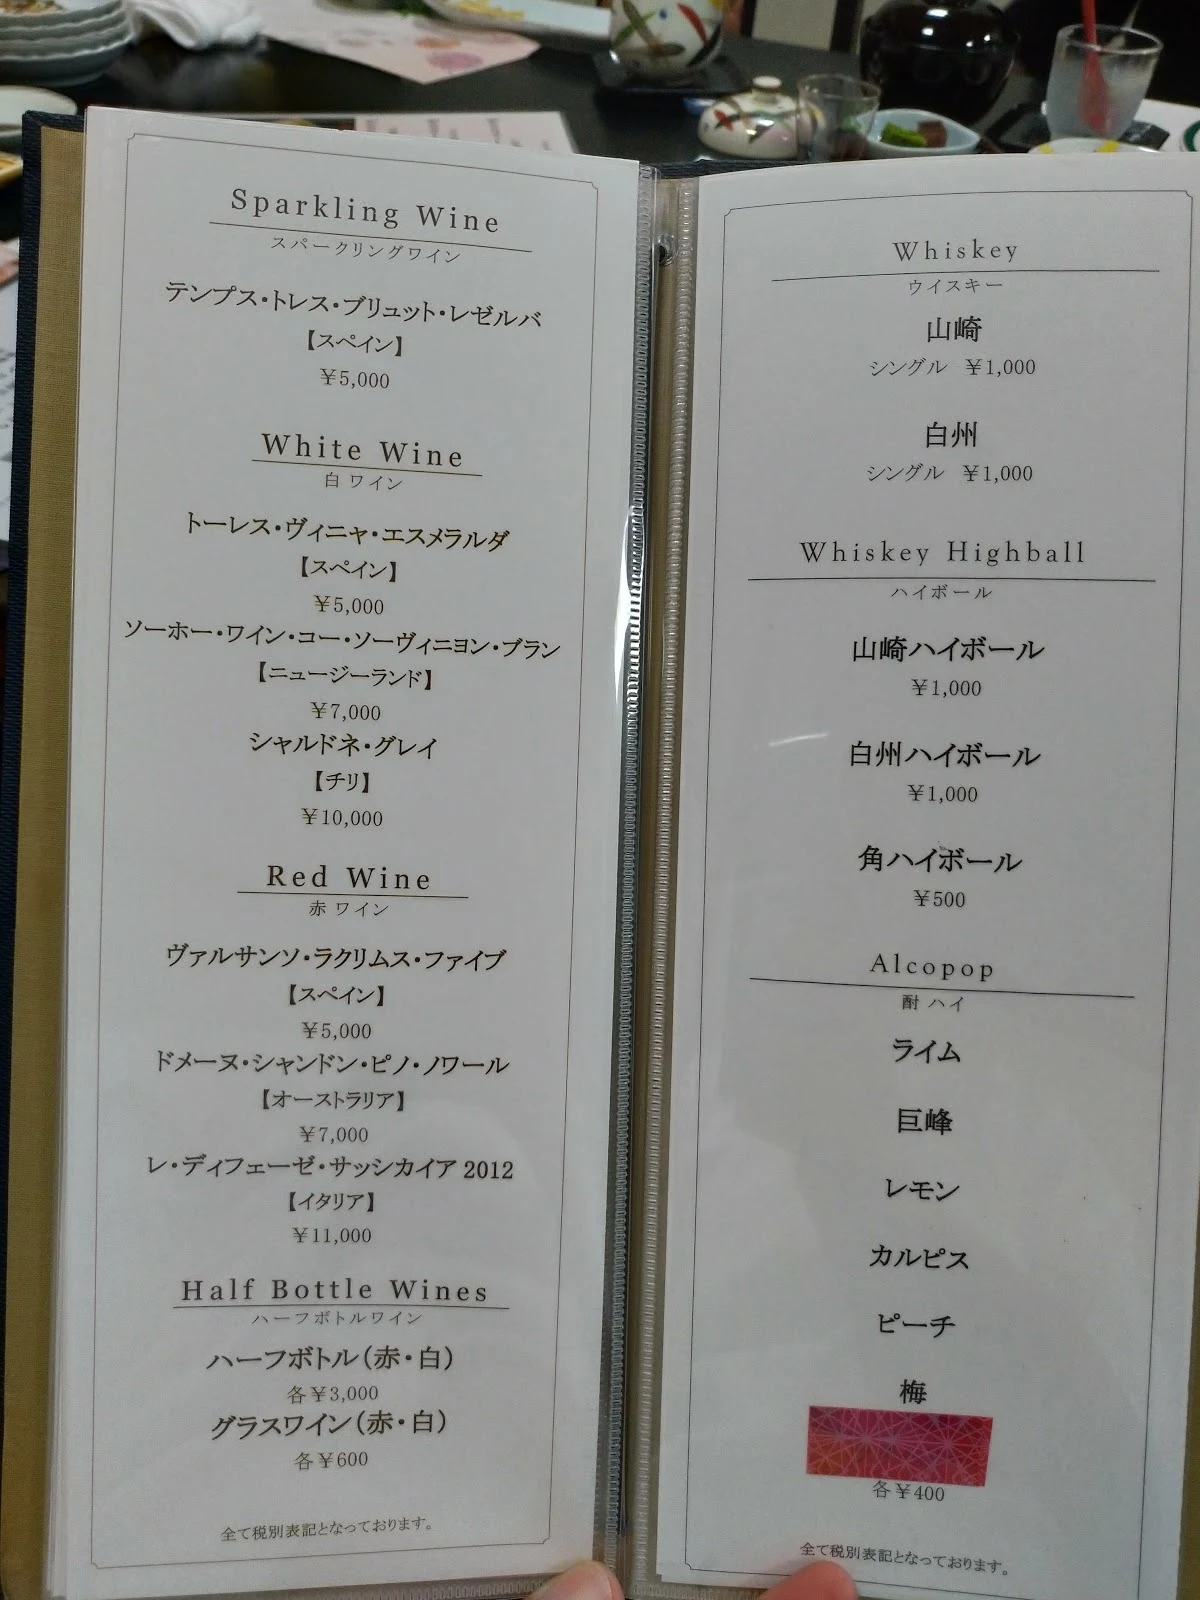 Sparkling Wine
スパークリングワイン
テンプス・トレス・ブリュット・レゼルバ
【スペイン】
￥5,000
White Wine
白ワイン
トーレス・ヴィニャ・エスメラルダ
【スペイン】
￥5,000
ソーホー・ワイン・コー・ソーヴィニヨン・ブラン
【ニュージーランド】
￥7,000
シャルドネ・グレイ
【チリ】
￥10,000
Red Wine
赤ワイン
ヴァルサンソ・ラクリムス・ファイブ
【スペイン】
￥5,000
ドメーヌ・シャンドン・ピノ・ノワール
【オーストラリア】
￥7,000
レ・ディフェーゼ・サッシカイア 2012
【イタリア】
￥11,000
Half Bottle Wines
ハーフボトルワイン
ハーフボトル（赤・白）
各￥3,000
グラスワイン（赤・白）
各￥600
全て税別表記となっております。
Whiskey
ウイスキー
山崎
シングル ￥1,000
白州
シングル ￥1,000
Whiskey Highball
ハイボール
山崎ハイボール
￥1,000
白州ハイボール
￥1,000
角ハイボール
￥500
Alcopop
酎ハイ
ライム
巨峰
レモン
カルピス
ピーチ
梅
各￥400
全て税別表記となっております。